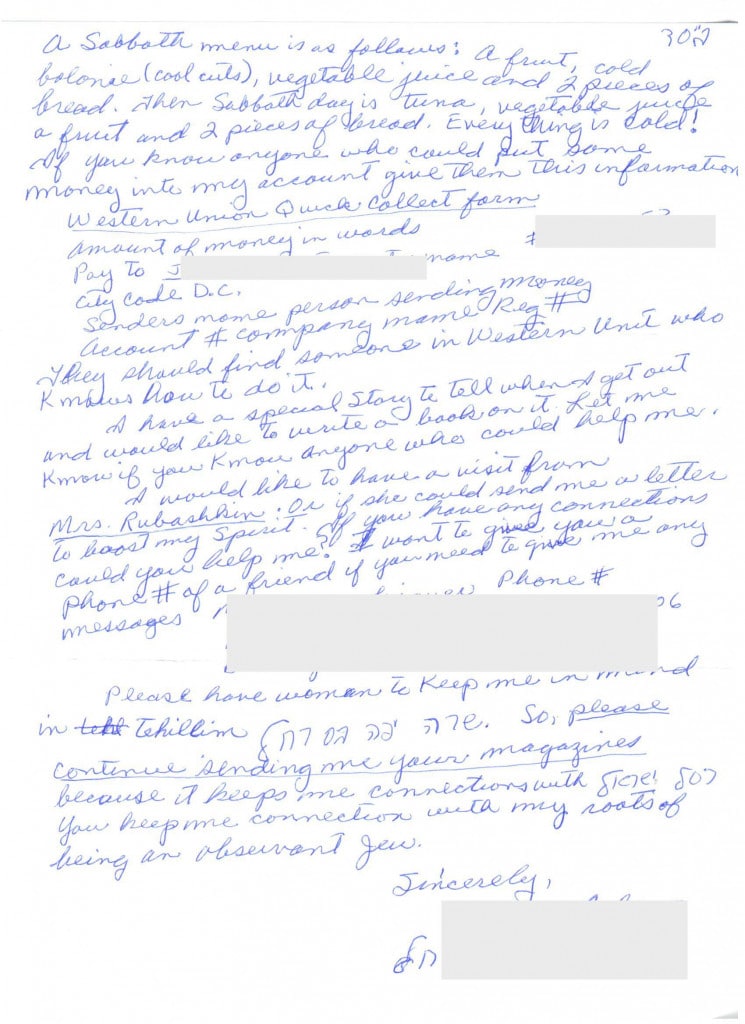 בס"ד
A Sabbath menu is as follows: A fruit, cold
bolonie (cool cuts), vegetable juice and 2 pieces of
bread. Then Sabbath day is tuna, vegetable juice
a fruit and 2 pieces of bread. Everything is cold!
If you know anyone who could put some
money into my account give them this information
Western Union Quick Collect form
amount of money in words #
Pay to J name
City code D.C.
Senders name person sending money
Account # company name Reg #
They should find someone in Western Unit who
Knows how to do it.
I have a special Story to tell when I get out
and would like to write a book on it. Let me
Know if you Know anyone who could help me.
I would like to have a visit from
Mrs. Rubashkin. Or if she could send me a letter
to boost my Spirit. If you have any connections
could you help me? I want to give you a
phone # of a friend if you need to give me any
messages Phone #
06
Please have woman to Keep me in mind
in Tehillim שרה יפה בת רחל. So, please
continue sending me your magazines
because it keeps me connections with כלל ישראל
You keep me connection with my roots of
being an observant Jew.
Sincerely,